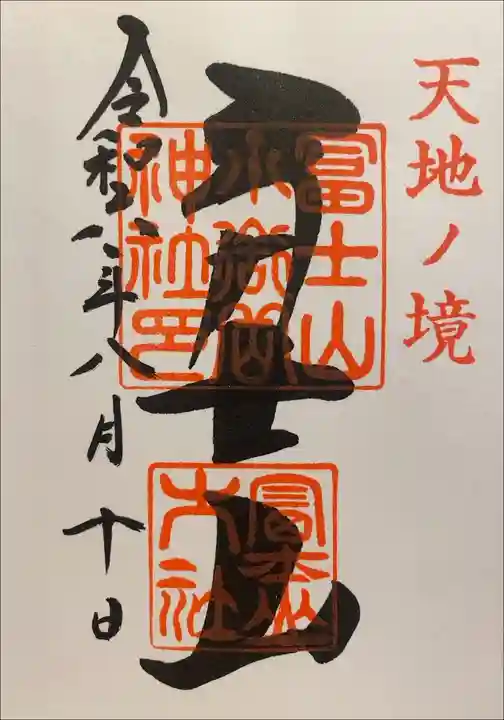 天地ノ境
冨士山
冨士山
小御嶽
神社印
大社
令和六年八月十日